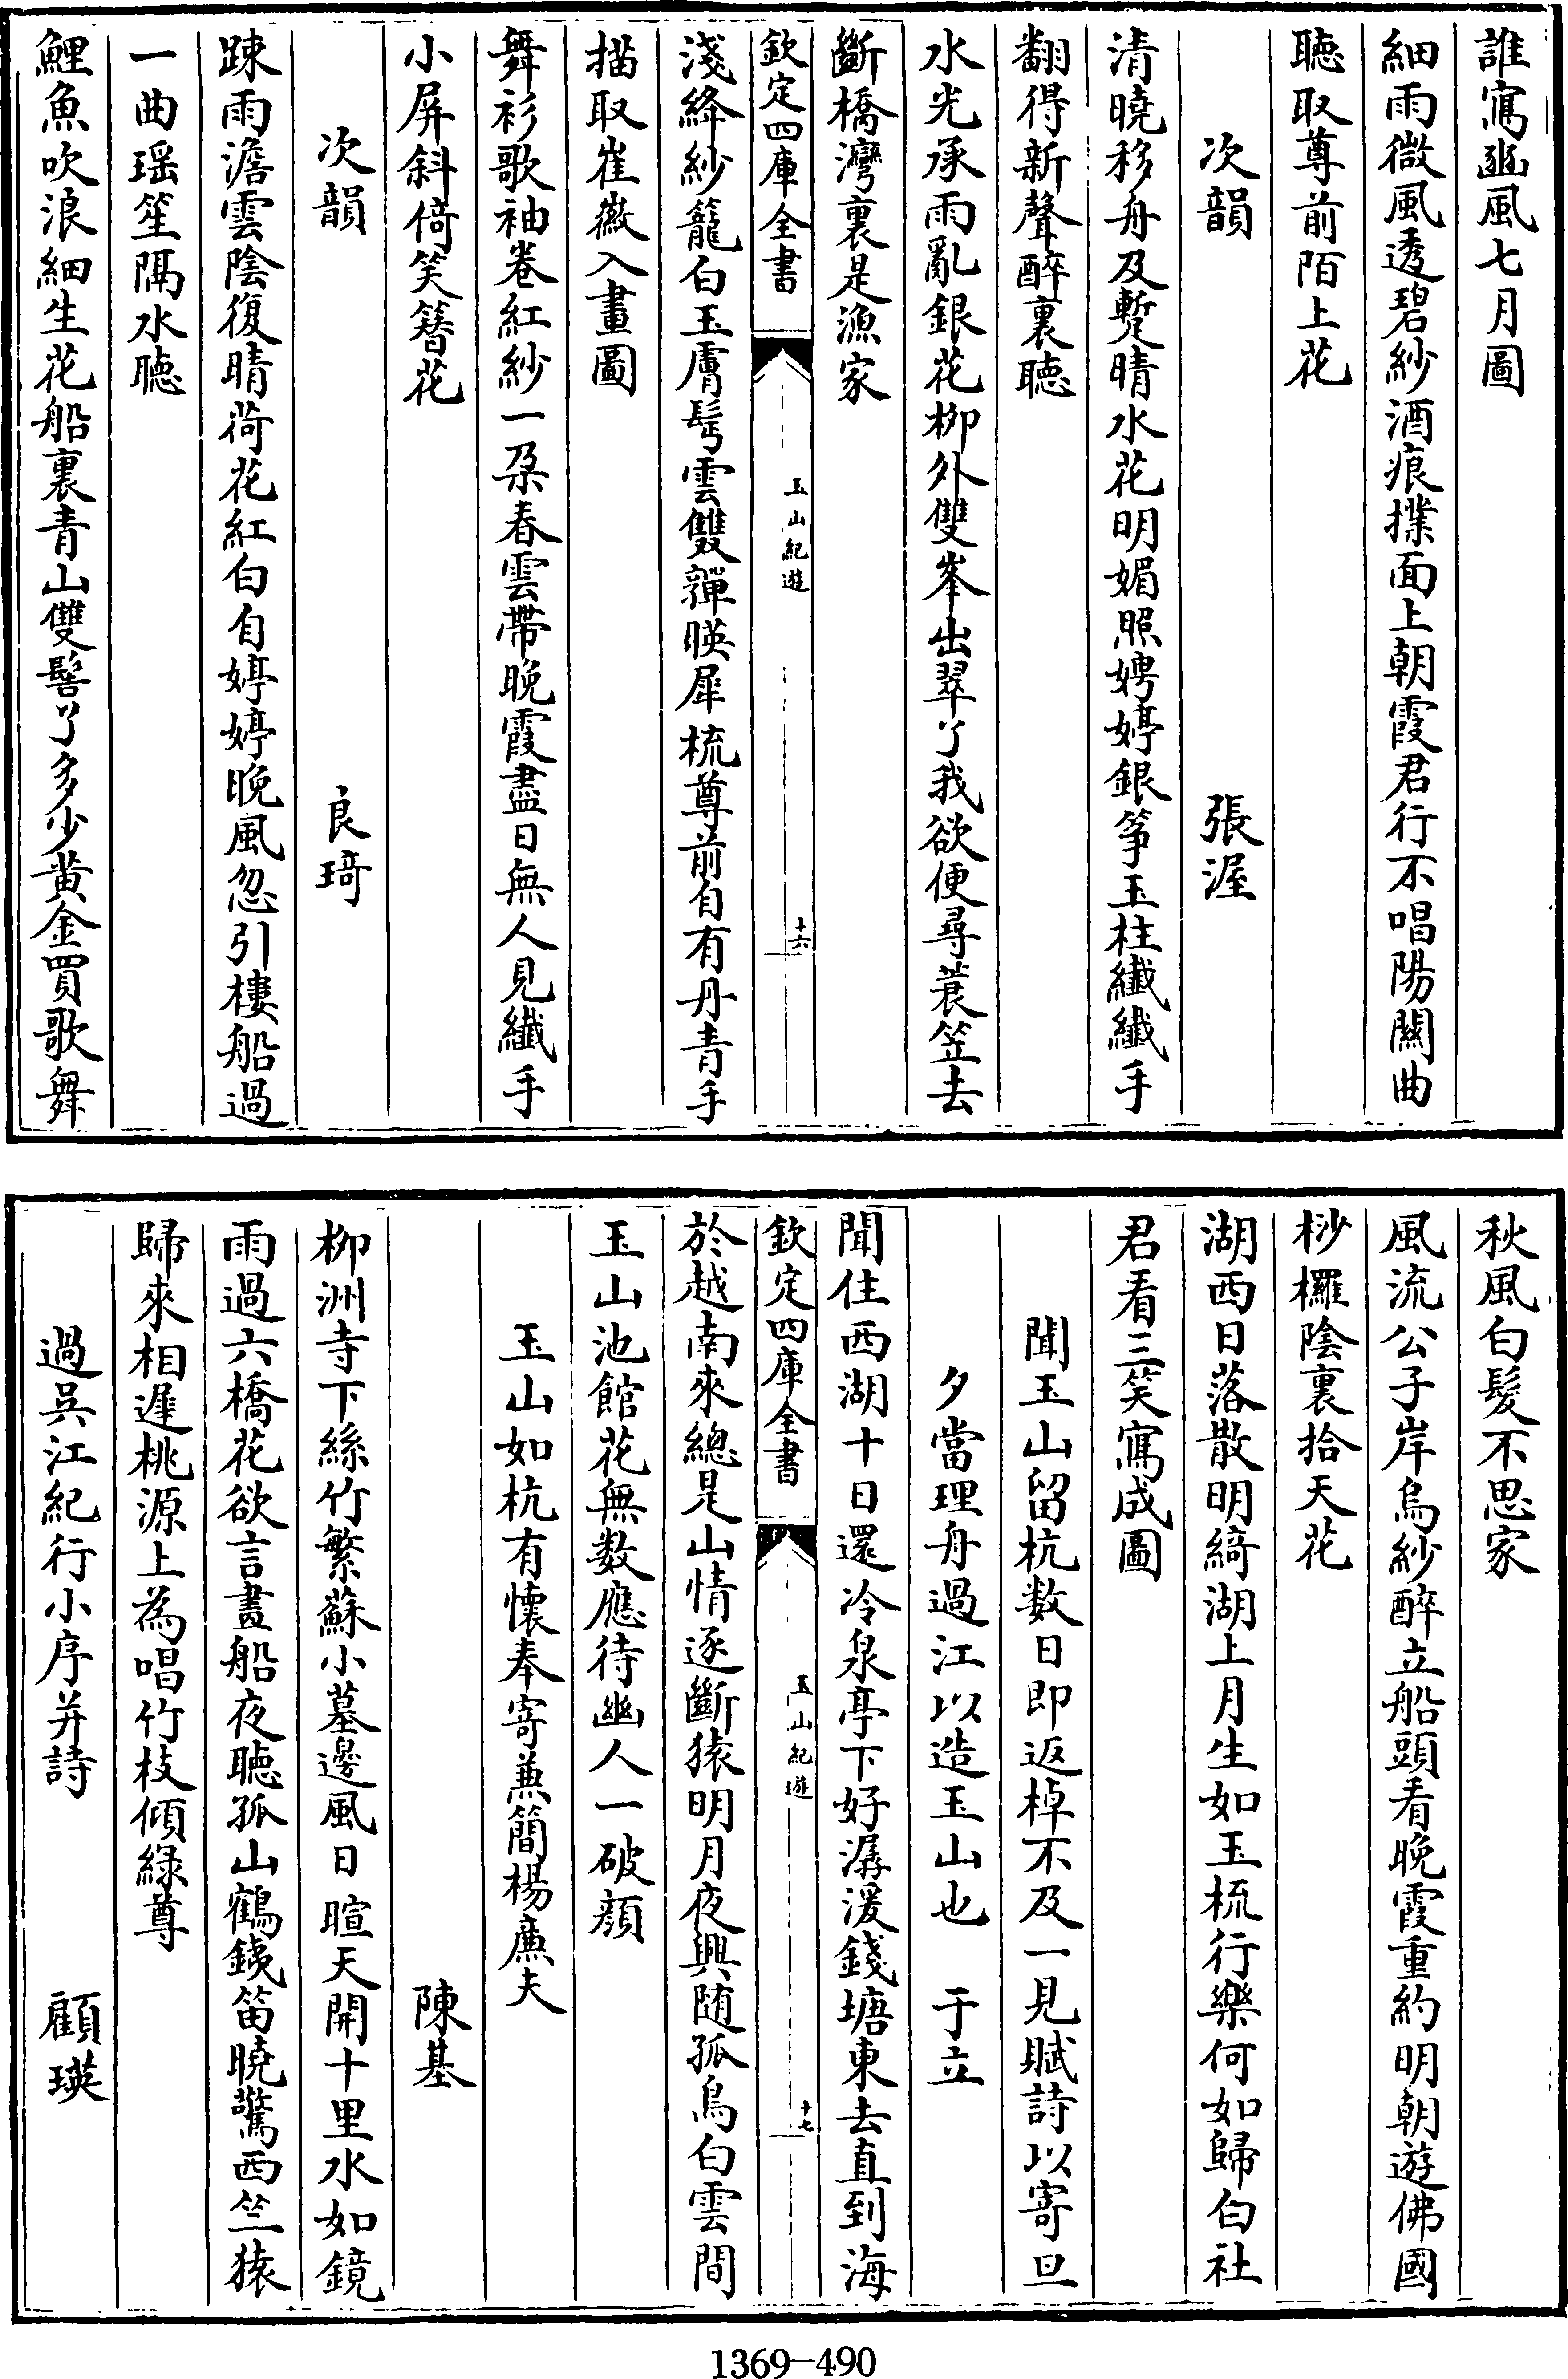 誰寫豳風七月圖
細雨微風透碧紗酒痕擛面上朝霞君行不唱陽關曲
聴取尊前陌上花
次韻 張渥
清曉移舟及蹔晴水花明媚照娉婷銀筝玉柱纖纖手
翻得新聲醉裏聴
水光承雨亂銀花栁外雙峯出翠丫我欲便尋蓑笠去
斷橋灣裏是漁家
欽定四庫全書 玉山紀遊 十六
淺絳紗籠白玉膚髩雲雙嚲暎犀梳尊前自有丹青手
描取崔徽入畫圖
舞衫歌袖卷紅紗一朶春雲帶晚霞盡日無人見纖手
小屏斜倚笑簪花
次韻 良琦
踈雨澹雲陰復晴荷花紅白自婷婷晚風忽引樓船過
一曲瑶笙隔水聴
鯉魚吹浪細生花船裏青山雙髻丫多少黄金買歌舞
秋風白髮不思家
風流公子岸烏紗醉立船頭看晚霞重約明朝遊佛國
桫欏陰裏拾天花
湖西日落散明綺湖上月生如玉梳行樂何如歸白社
君看三笑寫成圖
聞玉山留杭数日即返棹不及一見賦詩以寄旦
夕當理舟過江以造玉山也 于立
聞住西湖十日還冷泉亭下好潺湲錢塘東去直到海
欽定四庫全書 玉山紀遊 十七
於越南來總是山情逐斷猿明月夜興随孤鳥白雲間
玉山池館花無数應待幽人一破顔
玉山如杭有懷奉寄兼簡楊亷夫
陳基
栁洲寺下絲竹繁蘇小墓邊風日暄天開十里水如鏡
雨過六橋花欲言畫船夜聴孤山鶴鐵笛曉驚西竺猿
歸來相遲桃源上為唱竹枝傾緑尊
過吳江紀行小序并詩 顧瑛
1369—490